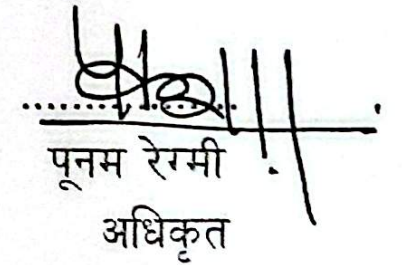 पूनम रेग्मी
अधिकृत